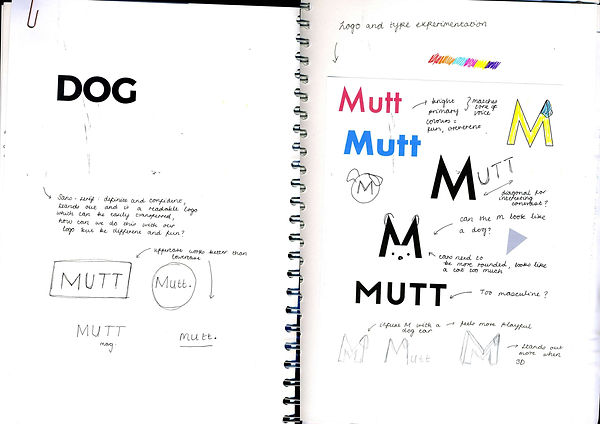 DOG
Sans-serif: definite and confident,
stands out and is a readable logo
which can be easily transferred,
how can we do this with our
logo but be different and fun?
uppercase works better than
lowercase
MUTT
Mutt.
MUTT
mag.
Mutt.
Logo and type experimentation
Mutt
bright
primary
colours =
fun, irreverent
matches
tone of
voice
Mutt
M
M
MUTT
diagonal for
interesting
construct?
M
can the M look like
a dog?
ears need to
be more rounded, looks like
a cat too much
MUTT
Too masculine?
M with a
dog ear
feels more playful
M
Mutt
M
stands out
more when
3D